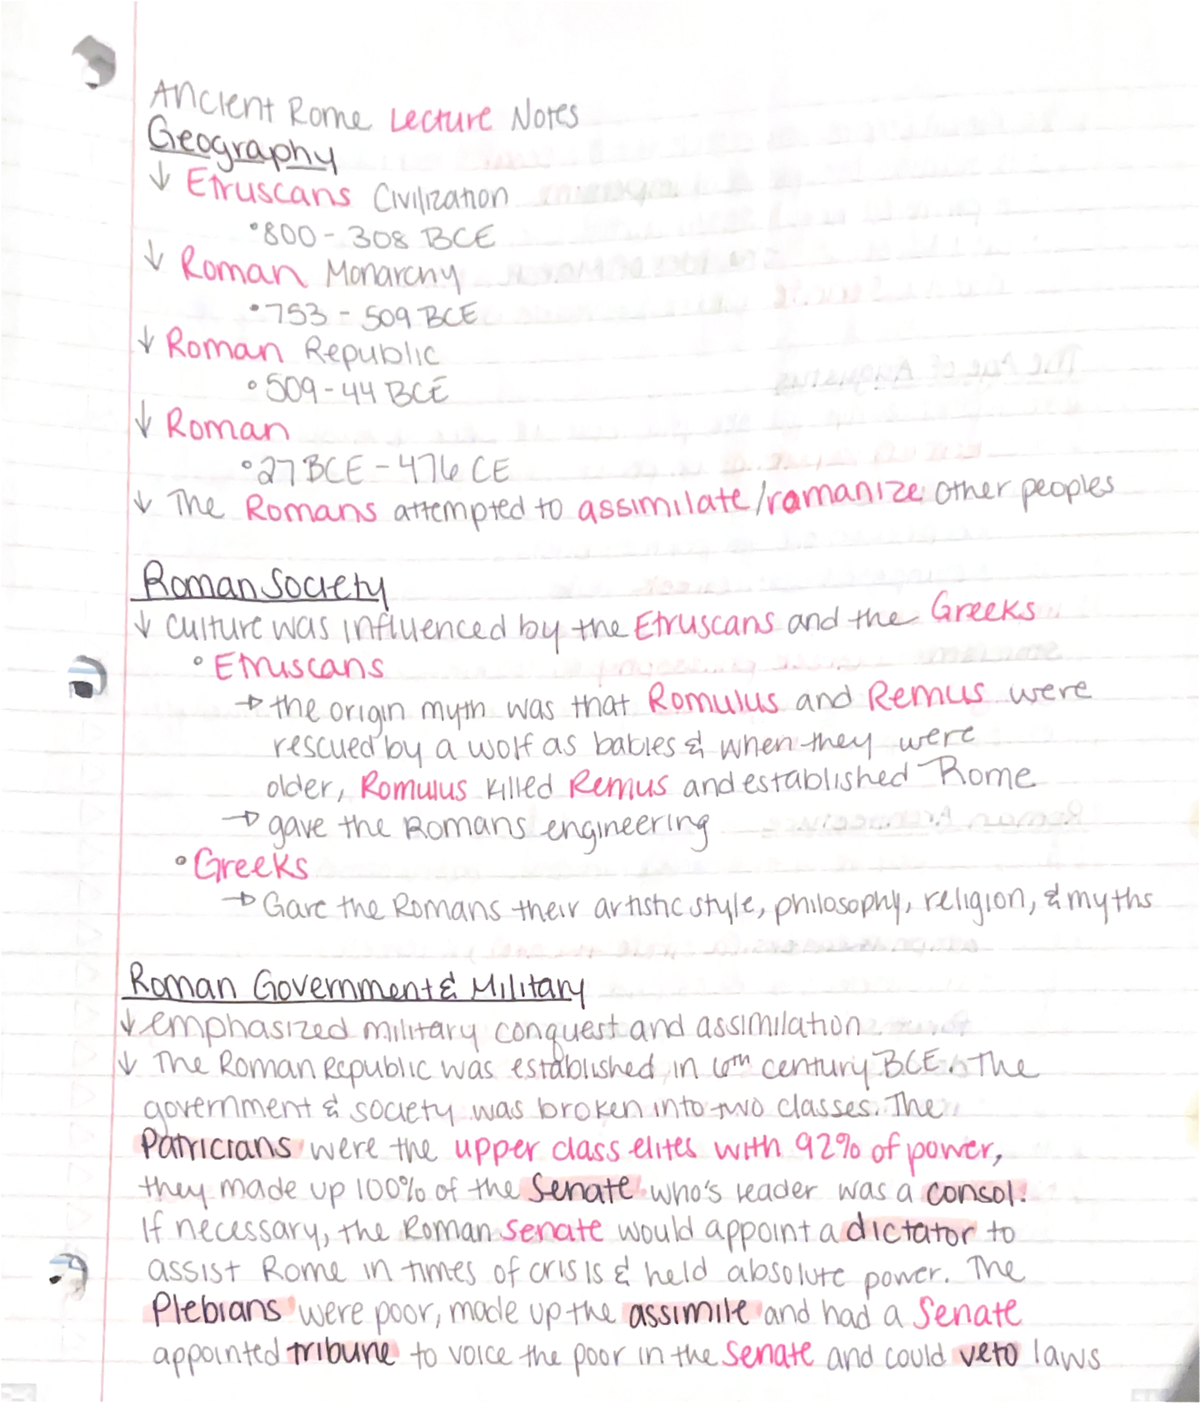 Ancient Rome Lecture Notes
Geography
↓ Etruscans Civilization
• 800 - 308 BCE
↓ Roman Monarchy
• 753 - 509 BCE
↓ Roman Republic
• 509 - 44 BCE
↓ Roman
• 27 BCE - 476 CE
↓ The Romans attempted to assimilate/romanize other peoples
Roman Society
↓ culture was influenced by the Etruscans and the Greeks
• Etruscans
→ the origin myth was that Romulus and Remus were
rescued by a wolf as babies & when they were
older, Romulus killed Remus and established Rome
→ gave the Romans engineering
• Greeks
→ Gave the Romans their artistic style, philosophy, religion, & myths
Roman Government & Military
↓ emphasized military conquest and assimilation
↓ The Roman Republic was established in 6th century BCE. The
government & society was broken into two classes. The
Patricians were the upper class elites with 92% of power,
they made up 100% of the Senate who's leader was a consol.
If necessary, the Roman senate would appoint a dictator to
assist Rome in times of crisis & held absolute power. The
Plebians were poor, made up the assimile and had a Senate
appointed tribune to voice the poor in the Senate and could veto laws